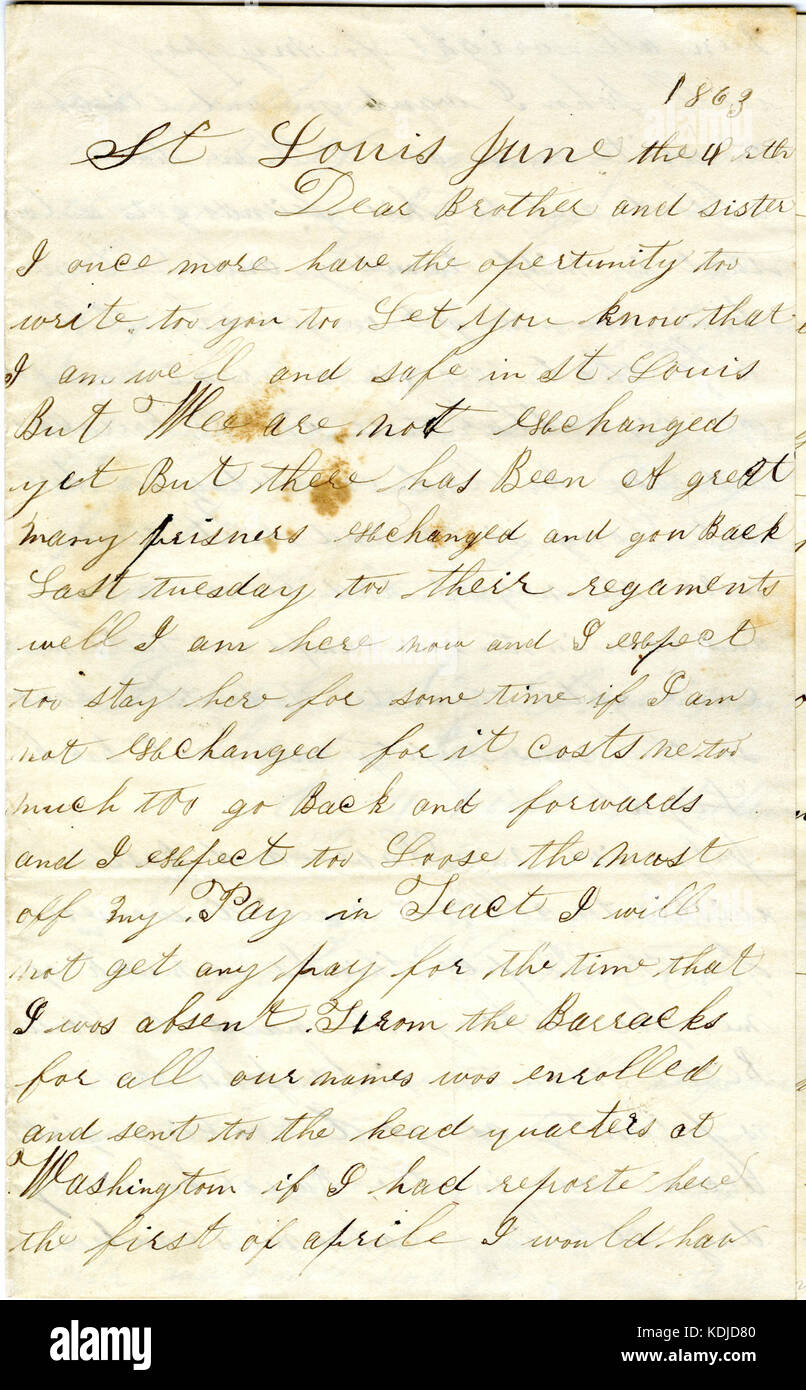 1863
St Louis June the 4 rth
Dear Brother and sister
I once more have the opertunity too
write too you too Let you know that
I am well and safe in St Louis
But Wee are not exchanged
yet But there has Been A great
many prisners exchanged and gon Back
Last tuesday too their regaments
well I am here now and I expect
too stay here for some time if I am
not exchanged for it costs me too
much too go Back and forwards
and I expect too Loose the most
off my Pay in Feact I will
not get any pay for the time that
I was absent From the Barracks
for all our names was enrolled
and sent too the head quarters at
Washingtom if I had reporte here
the first of aprile I would hav
alamy
Image ID: KDJD80
www.alamy.com